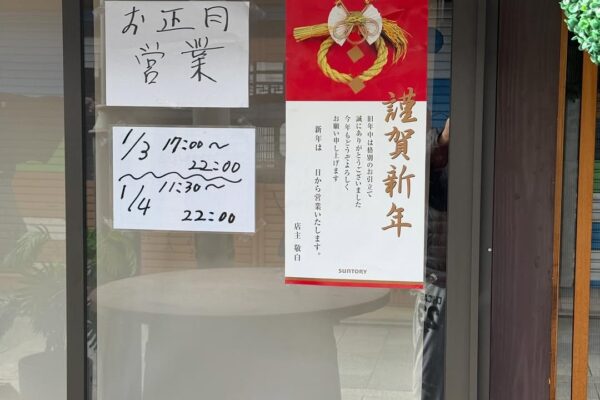 お正月
営業
1/3 17:00～
22:00
1/4 11:30～
22:00
謹賀新年
旧年中は格別のお引立て
誠にありがとうございました
今年もどうぞよろしく
お願い申し上げます
新年は　　日から営業いたします。
店主 敬白
SUNTORY